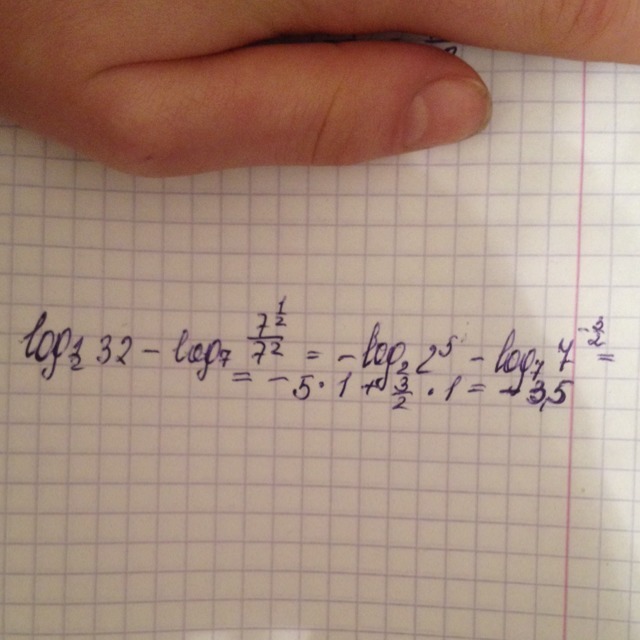 log_{1/2} 32 - log_7 \frac{7^{1/2}}{7^2} = -log_2 2^5 - log_7 7^{-3/2} =
= -5 · 1 + \frac{3}{2} · 1 = -3,5